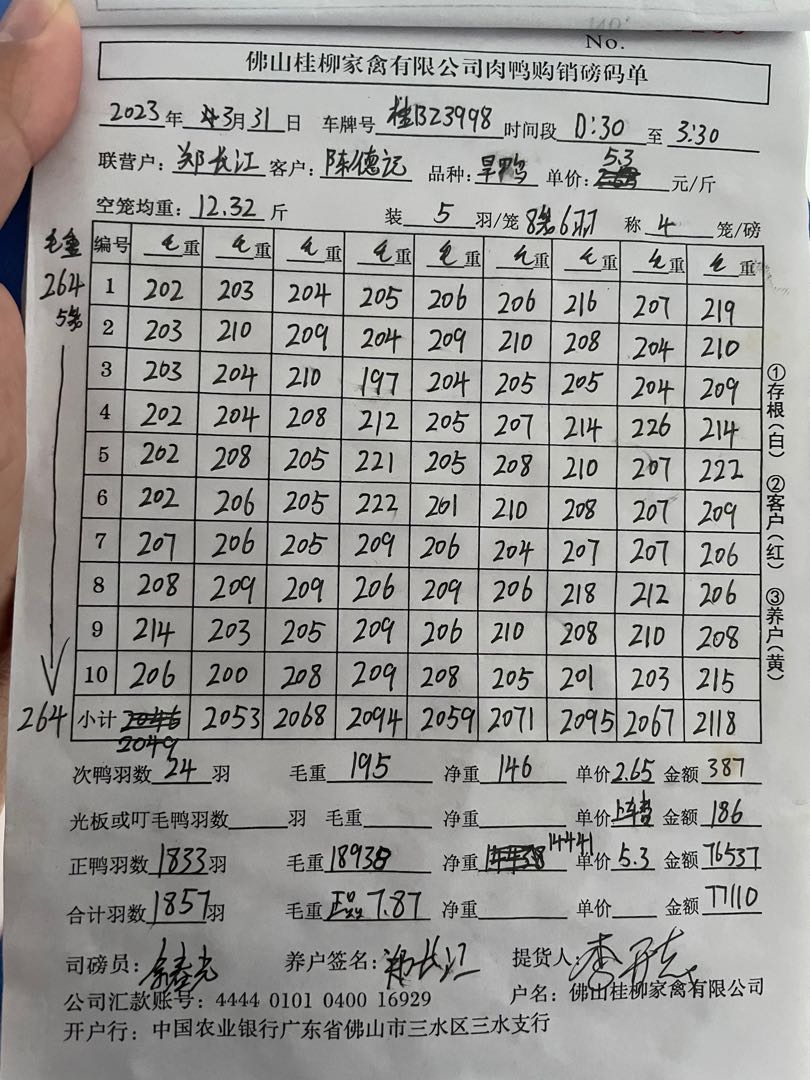 No.
佛山桂柳家禽有限公司肉鸭购销磅码单
2023年 3月31日 车牌号 桂B23998 时间段 0:30 至 3:30
联营户: 郑长江 客户: 陈德记 品种: 旱鸭 单价: 5.3 元/斤
空笼均重: 12.32 斤 装 5 羽/笼 8笼6羽 称 4 笼/磅
毛重 编号 毛重 毛重 毛重 毛重 毛重 毛重 毛重 毛重 毛重
264 1 202 203 204 205 206 206 216 207 219
5笼 2 203 210 209 204 209 210 208 204 210
3 203 204 210 197 204 205 205 204 209
4 202 204 208 212 205 207 214 226 214
5 202 208 205 221 205 208 210 207 222
6 202 206 205 222 201 210 208 207 209
7 207 206 205 209 206 204 207 207 206
8 208 209 209 206 209 206 218 212 206
9 214 203 205 209 206 210 208 210 208
10 206 200 208 209 208 205 201 203 215
264 小计 2046 2053 2068 2094 2059 2071 2095 2067 2118
2049
次鸭羽数 24 羽 毛重 195 净重 146 单价 2.65 金额 387
光板或叮毛鸭羽数 羽 毛重 净重 单价 上车费 金额 186
正鸭羽数 1833 羽 毛重 18938 净重 14441 单价 5.3 金额 76537
合计羽数 1857 羽 毛重 正品 7.87 净重 单价 金额 77110
司磅员: 养户签名: 郑长江 提货人:
公司汇款账号: 4444 0101 0400 16929 户名: 佛山桂柳家禽有限公司
开户行: 中国农业银行广东省佛山市三水区三水支行
①存根(白) ②客户(红) ③养户(黄)